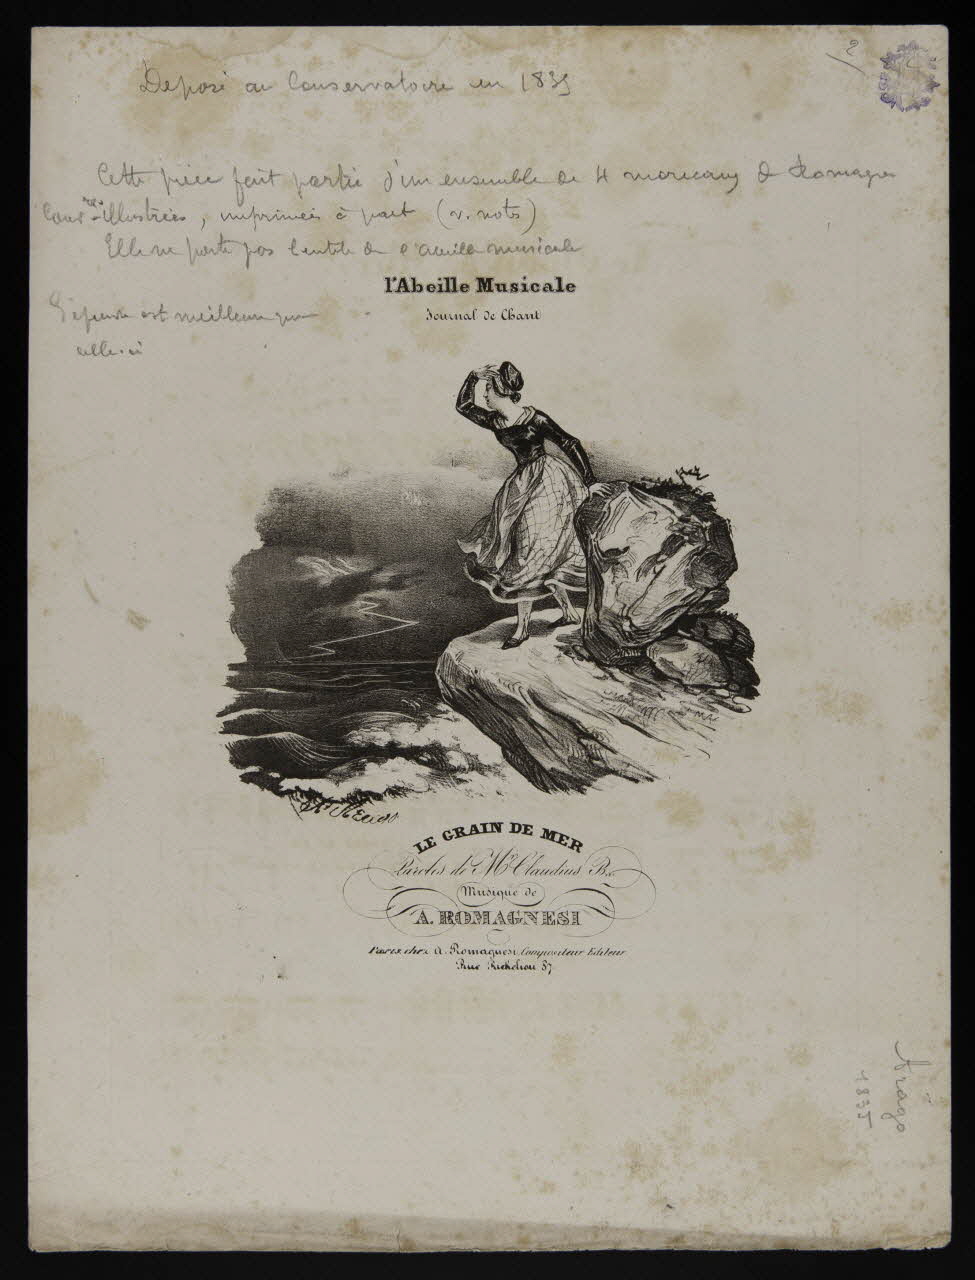 Déposé au Conservatoire en 1835
2
Cette pièce fait partie d'un ensemble de 4 morceaux de Romagnesi
illustrées, imprimées à part (v. note)
Elle ne porte pas l'entête de l'Abeille musicale
l'Abeille Musicale
Journal de Chant
L'épreuve est meilleure que
celle-ci
LE GRAIN DE MER
Paroles de Mr. Claudius B.
Musique de
A. ROMAGNESI
Paris, chez A. Romagnesi, Compositeur Editeur
Rue Richelieu 87
1835